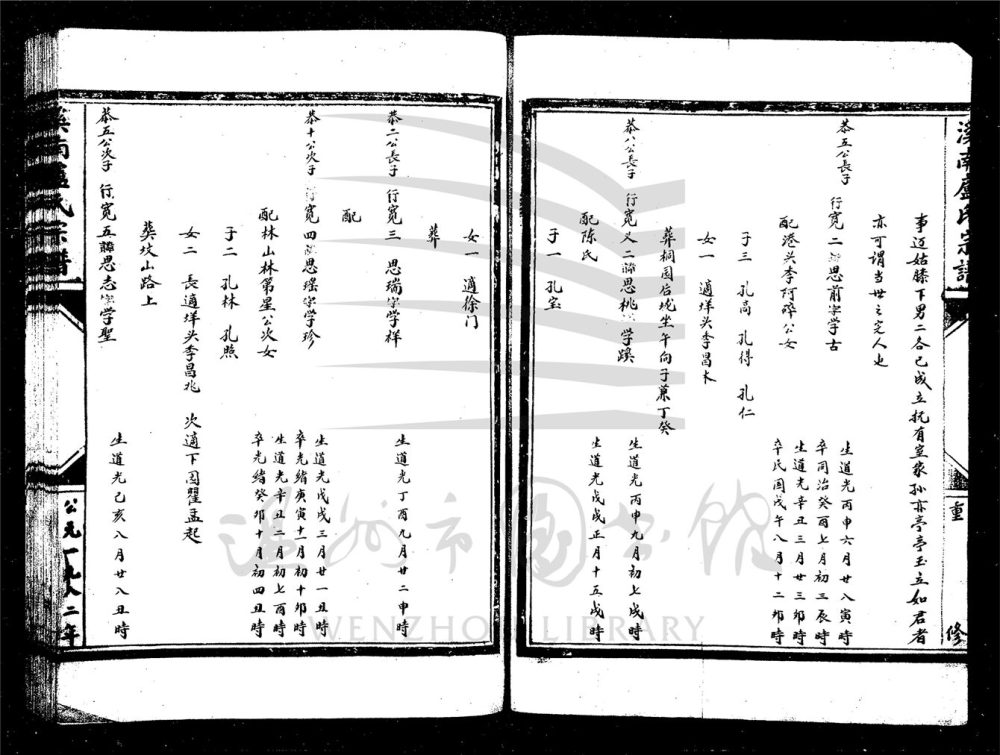 溪南盧氏宗譜
重修
事迈姑膝下男二各已成立抚有室家孙亦亭亭玉立如君者
亦可谓当世之完人也
恭五公長子 行寬二 思前字学古
生道光丙申六月廿八寅時
卒同治癸酉七月初三辰時
配港头李阿碎公女
生道光辛丑三月廿三邜時
卒民囯戊午八月十二邜時
子三 孔高 孔得 孔仁
女一 適垟头李昌木
葬桐园后垅坐午向子兼丁癸
恭八公長子 行寬又二諱思桃 学蹊
生道光丙申九月初七戌時
配陈氏
生道光戊戌正月十五戌時
子一 孔宝
女一 適徐门
葬
恭二公長子 行寬三 思瑞字学祥
生道光丁酉九月廿二申時
配
恭十公次子 行寬四 思瑤字学珍
生道光戊戌三月廿一丑時
卒光緒庚寅十一月初十邜時
配林山林第星公次女
生道光辛丑二月初七酉時
卒光緒癸邜十月初四丑時
子二 孔林 孔照
女二 長適垟头李昌兆 次適下园瞿孟起
葵坟山路上
恭五公次子 行寬五諱思志字学聖
生道光己亥八月廿八丑時
溪南盧氏宗譜
公元一九八二年
温州市图书馆
WENZHOU LIBRARY